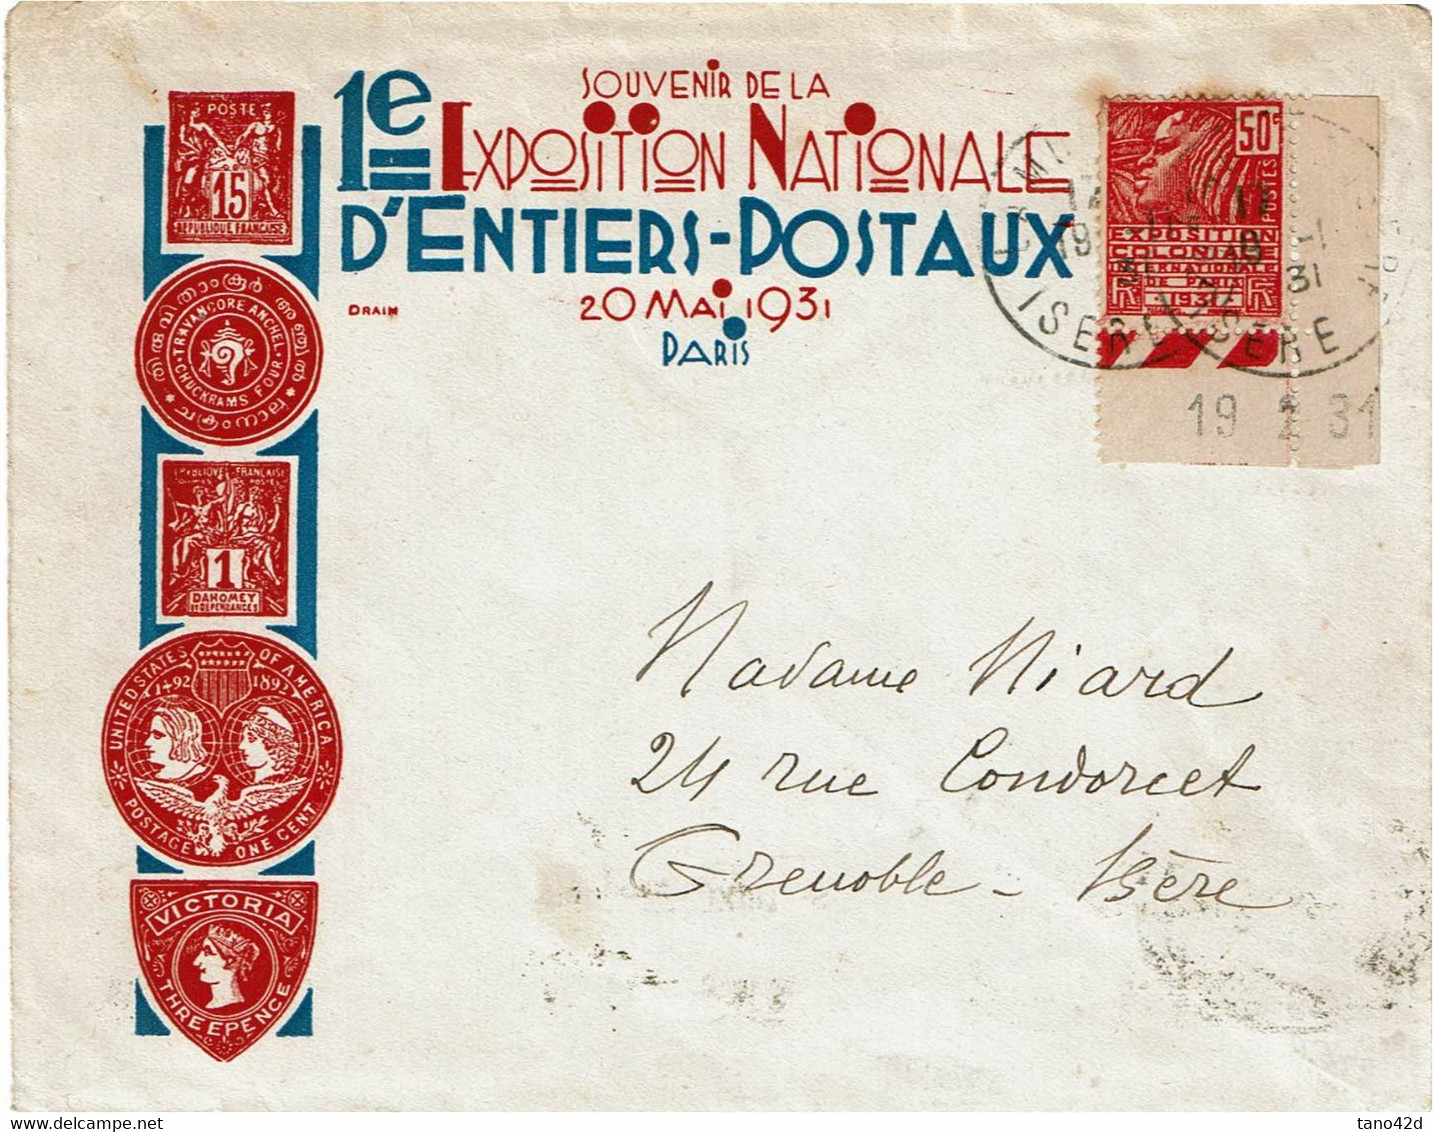 SOUVENIR DE LA
1e EXPOSITION NATIONALE
D'ENTIERS-POSTAUX
20 MAI 1931
PARIS
DRAIM
POSTE
15
REPUBLIQUE FRANÇAISE
TRAVANCORE ANCHEL
CHUCKRAMS FOUR
REPUBLIQUE FRANÇAISE
1
DAHOMEY
ET DEPENDANCES
UNITED STATES OF AMERICA
1492 1892
POSTAGE ONE CENT
VICTORIA
THREEPENCE
50c
POSTES
EXPOSITION
COLONIALE
INTERNATIONALE
DE PARIS
1931
ISERE
ISERE
31
19 2 31
Madame Niard
24 rue Condorcet
Grenoble - Isère
tano42d